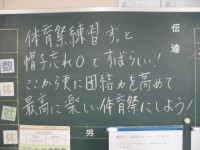 伝達
体育祭練習ずっと
帽子忘れ0ですばらしい!
ここから更に団結力を高めて
最高に楽しい体育祭にしよう!
数
体
男